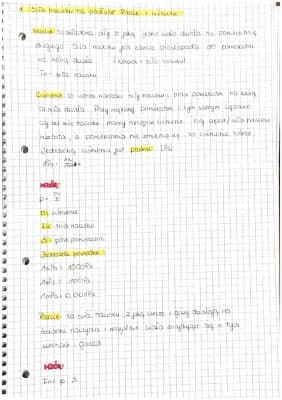 1. Siła nacisku na podłoże. Parcie i ciśnienie
Nacisk to siła z jaką jedno ciało działa na powierzchnię
drugiego. Siła nacisku jest zawsze prostopadła do powierzchni
na którą działa (Nacisk = siła nacisku)
Fn - siła nacisku
Ciśnienie to iloraz wartości siły nacisku i pola powierzchni na którą
ta siła działa. Przy większej powierzchni i tym samym ciężarze
czy też sile nacisku mamy mniejsze ciśnienie. Gdy siła nacisku
wzrasta, a powierzchnia nie zmienia się, to ciśnienie rośnie.
Jednostką ciśnienia jest paskal [Pa]
1Pa =
WZÓR:
p =
p - ciśnienie
Fn - siła nacisku
S - pole powierzchni
Jednostki pochodne
1kPa = 1000Pa
1hPa = 100Pa
Parcie - to siła nacisku, z jaką ciecze i gazy działają na
ścianki naczynia i wszystkie ciała znajdujące się w tych
cieczach i gazach
WZÓR:
Fn = p · S